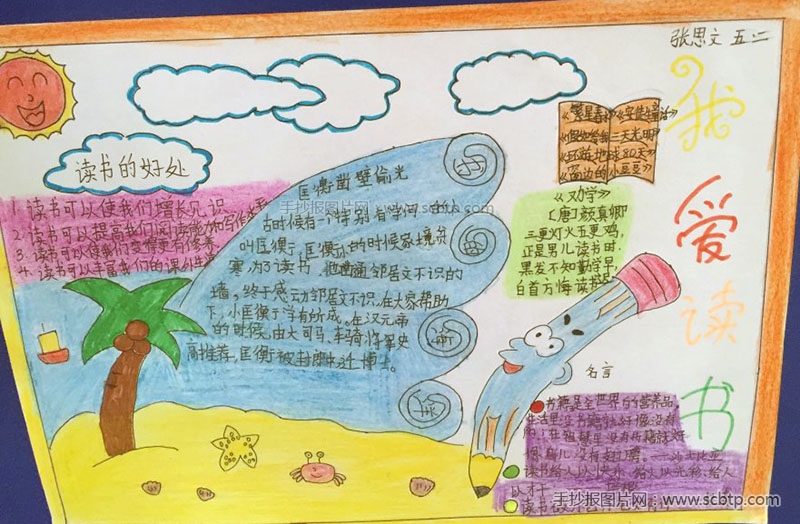 张思文 五.二
我爱读书
《繁星春水》《安徒生童话》
《假如给我三天光明》
《环游地球80天》
《窗边的小豆豆》
读书的好处
1. 读书可以使我们增长见识
2. 读书可以提高我们阅读能力和写作水平
3. 读书可以使我们变得更有修养
4. 读书可以丰富我们的课外生活
匡衡凿壁偷光
古时候有一个特别有学问的人
叫匡衡,匡衡小的时候家境贫
寒,为了读书,他凿通邻居文不识的
墙,终于感动邻居文不识,在大家帮助
下,小匡衡学有所成。在汉元帝
的时候,由大司马、车骑将军史
高推荐,匡衡被封郎中,迁博士。
《劝学》
【唐】颜真卿
三更灯火五更鸡,
正是男儿读书时,
黑发不知勤学早,
白首方悔读书迟
名言
书籍是全世界的营养品,
生活里没有书籍就好像没有
阳光;智慧里没有书籍就好
像鸟儿没有翅膀。
读书给人以快乐、给人以光彩、给人
以才干
手抄报图片网:www.scbtp.com
手抄报图片网:www.scbtp.com